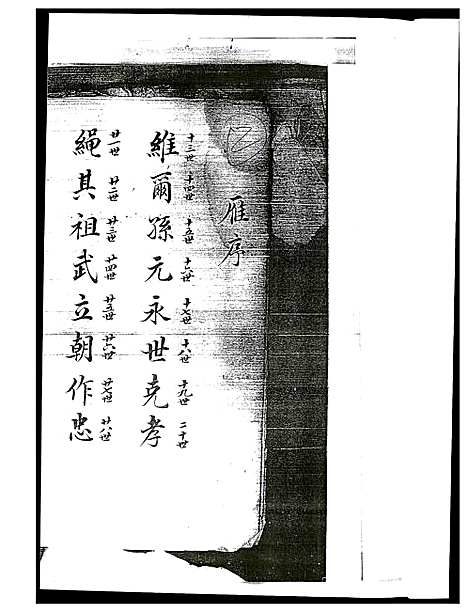 雁序
維爾孫元永世克孝
十三世 十四世 十五世 十六世 十七世 十八世 十九世 二十世
繩其祖武立朝作忠
廿一世 廿二世 廿三世 廿四世 廿五世 廿六世 廿七世 廿八世